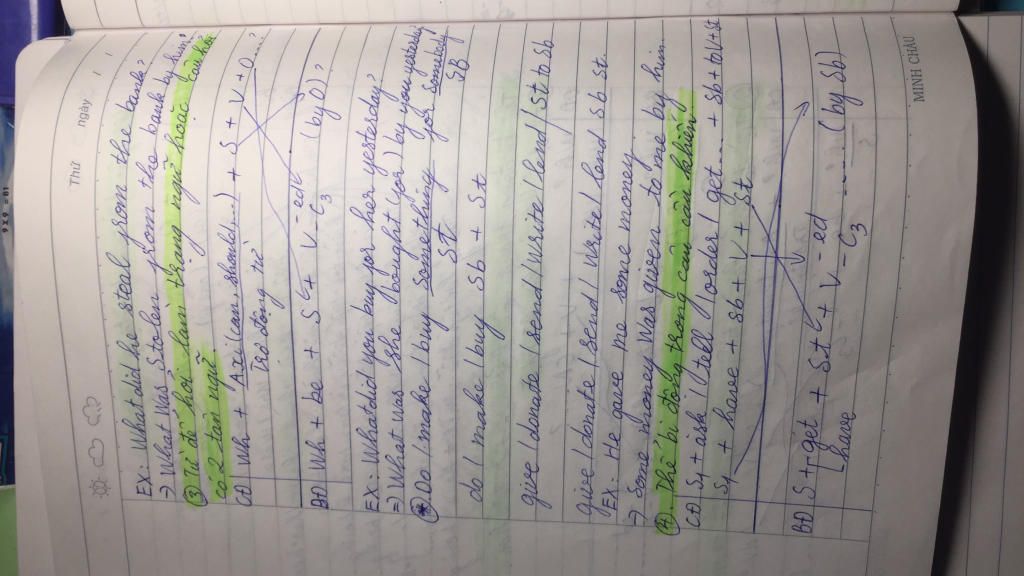 Thứ
ngày
EX: What did he steal from the bank?
→ What was stolen from the bank by him?
③ Từ để hỏi làm trạng ngữ hoặc câu hỏi
có 2 tân ngữ
CĐ Wh + Aux (can, should...) + S + V + O...?
Trợ động từ
BĐ Wh + be + S + V-ed/c3 (by O)?
EX: What did you buy for her yesterday?
⇒ What was she bought (for) by you yesterday?
* Do / make / buy something for somebody
St SB
do / make / buy Sb + St
give / donate / send / write / lend / St to Sb
give / donate / send / write / lend Sb St.
EX: He gave me some money
→ Some money was given to me by him.
④. Thể bị động trong câu cầu khiến
CĐ S1 + ask / tell / order / get... + Sb + to V + St
S1 + have + Sb + V + St
BĐ S + [get + St + V-ed ... (by Sb)
[have V-c3
MINH CHÂU